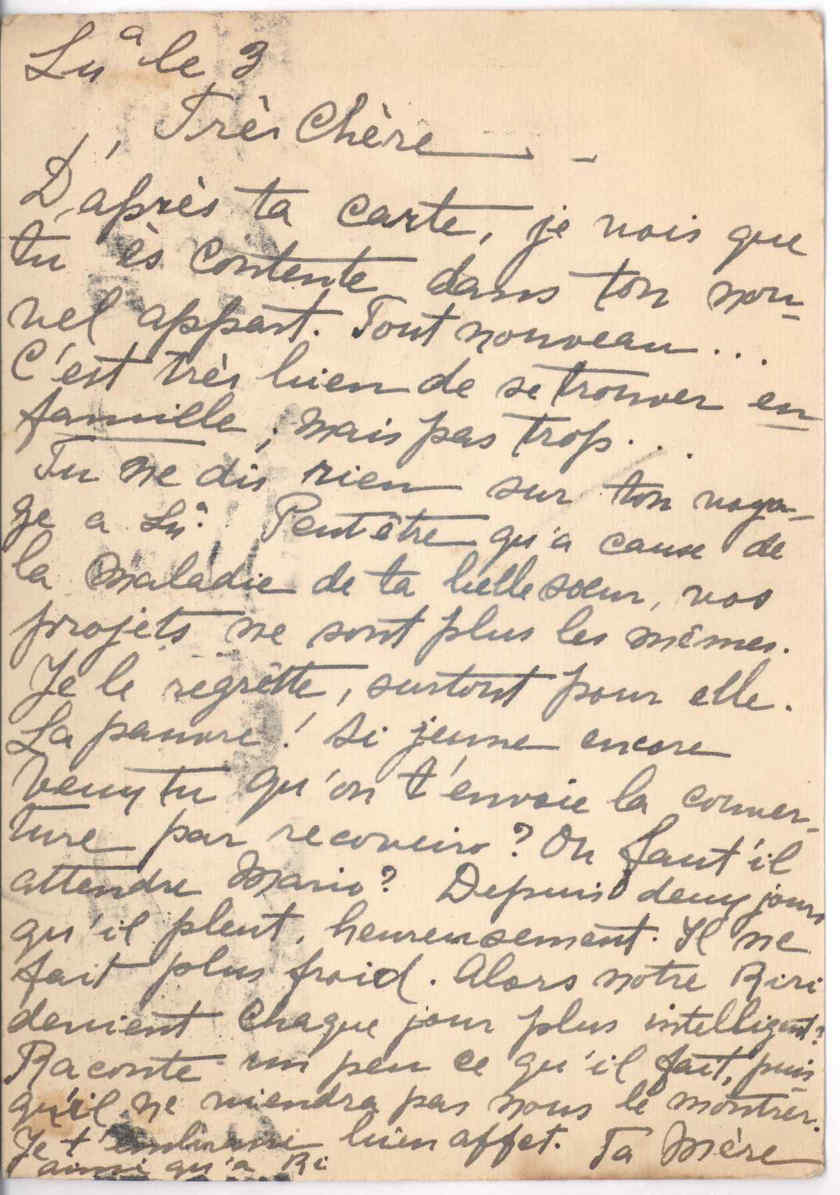 Luª le 3
Très Chère
D'après ta carte, je vois que
tu ès contente dans ton nou-
vel appart. Tout nouveau...
C'est très bien de se trouver en
famille, mais pas trop...
Tu ne dis rien sur ton voya-
ge a Luª. Peut être qu'a cause de
la maladie de ta belle soeur, vos
projets ne sont plus les mêmes.
Je le regrètte, surtout pour elle.
La pauvre! Si jeune encore
Veux tu qu'on t'envoie la couver-
ture par recoveiro? Ou faut'il
attendre Mario? Depuis deux jours
qu'il pleut, heureusement. Il ne
fait plus froid. Alors notre Riri
devient chaque jour plus intelligent?
Raconte un peu ce qu'il fait, puis-
qu'il ne viendra pas nous le montrer.
Je t'embrasse bien affet. Ta Mère
ainsi qu'a Ri